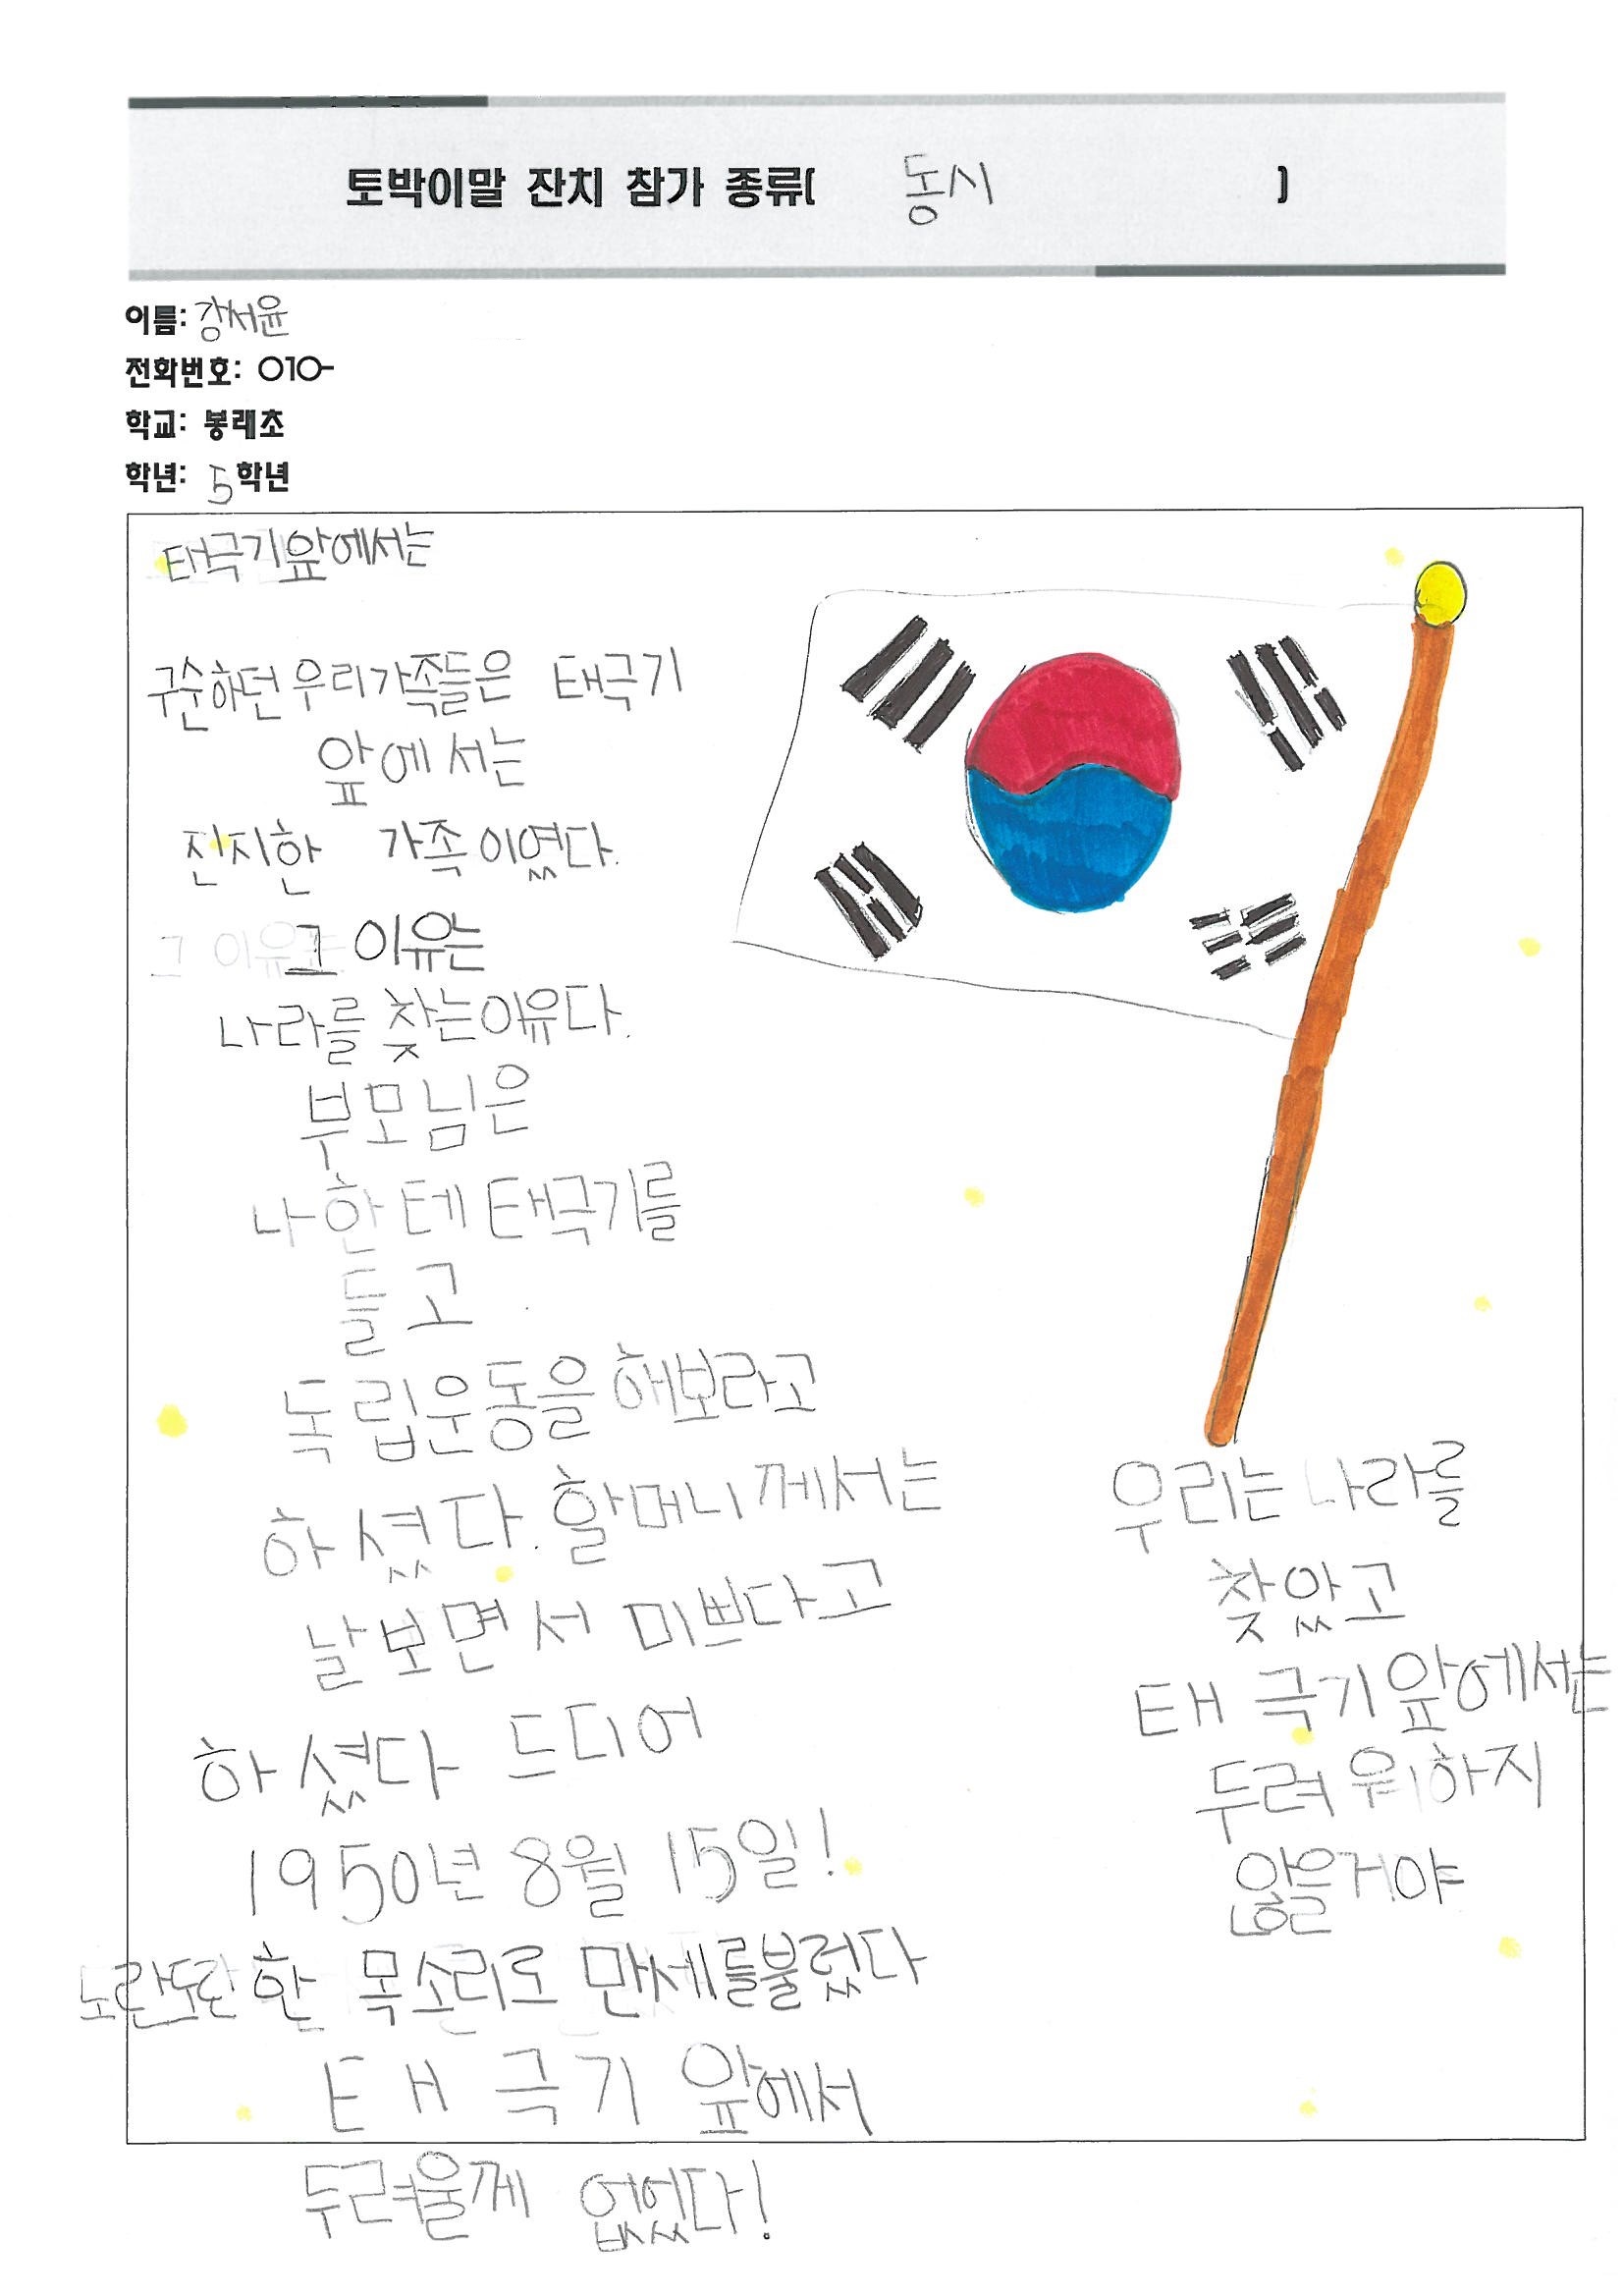 토박이말 잔치 참가 종류( 동시 )
이름: 강서윤
전화번호: 010-
학교: 봉래초
학년: 5학년
태극기앞에서는
구순하던 우리가족들은 태극기
앞에서는
진지한 가족이였다.
그 이유는
나라를 찾는이유다.
부모님은
나한테 태극기를
들고
독립운동을 해보라고
하셨다. 할머니께서는
날보면서 미쁘다고
하셨다 드디어
1950년 8월 15일!
노란도란한 목소리로 만세를불렀다
태극기 앞에서
두려울께 없었다!
우리는 나라를
찾았고
태극기앞에서는
두려워하지
않을거야